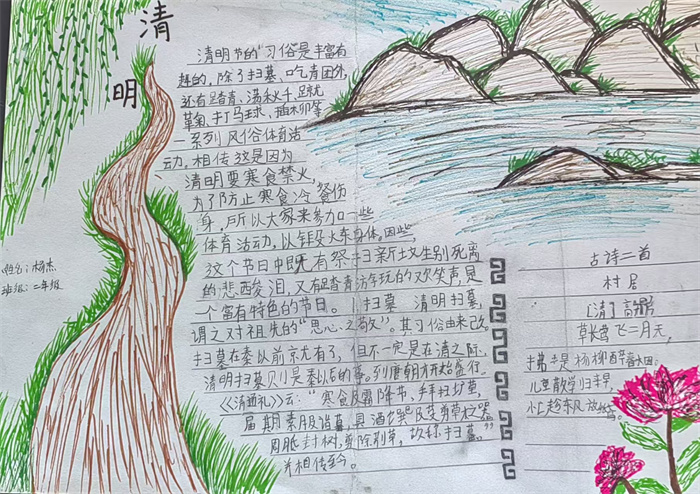 清
明
清明节的习俗是丰富有
趣的,除了扫墓、吃青团外,
还有踏青、荡秋千、蹴
鞠、打马球、插柳等
一系列风俗体育活
动,相传这是因为
清明要寒食禁火,
为了防止寒食冷餐伤
身,所以大家来参加一些
体育活动,以锻炼身体,因此,
这个节日中既有祭扫新坟生别死离
的悲酸泪,又有踏青游玩的欢笑声,是
一个富有特色的节日。1扫墓 清明扫墓,
谓之对祖先的“思心之敬”。其习俗由来
扫墓在秦以前就有了,但不一定是在清之际,
清明扫墓则是秦以后的事。到唐朝才开始盛行。
《清通礼》云:“寒食及霜降节,拜扫圹茔,
届期素服诣墓,具酒馔及芟剪草木之
周胝封树,剪除荆草,故称扫墓。”
并相传至今。
姓名:杨杰
班级:二年级
古诗二首
村居
[清]高鼎
草长莺飞二月天,
拂堤杨柳醉春烟。
儿童散学归来早,
忙趁东风放